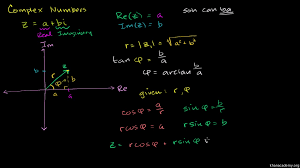 Complex Numbers
z = a + bi
Real Imaginary
Im
b
z
r
φ
a
Re
Re(z) = a
Im(z) = b
r = |z| = √(a² + b²)
tan φ = b/a
φ = arctan b/a
given: r, φ
cos φ = a/r sin φ = b/r
r cos φ = a r sin φ = b
z = r cos φ + r sin φ
soh cah toa
khanacademy.org